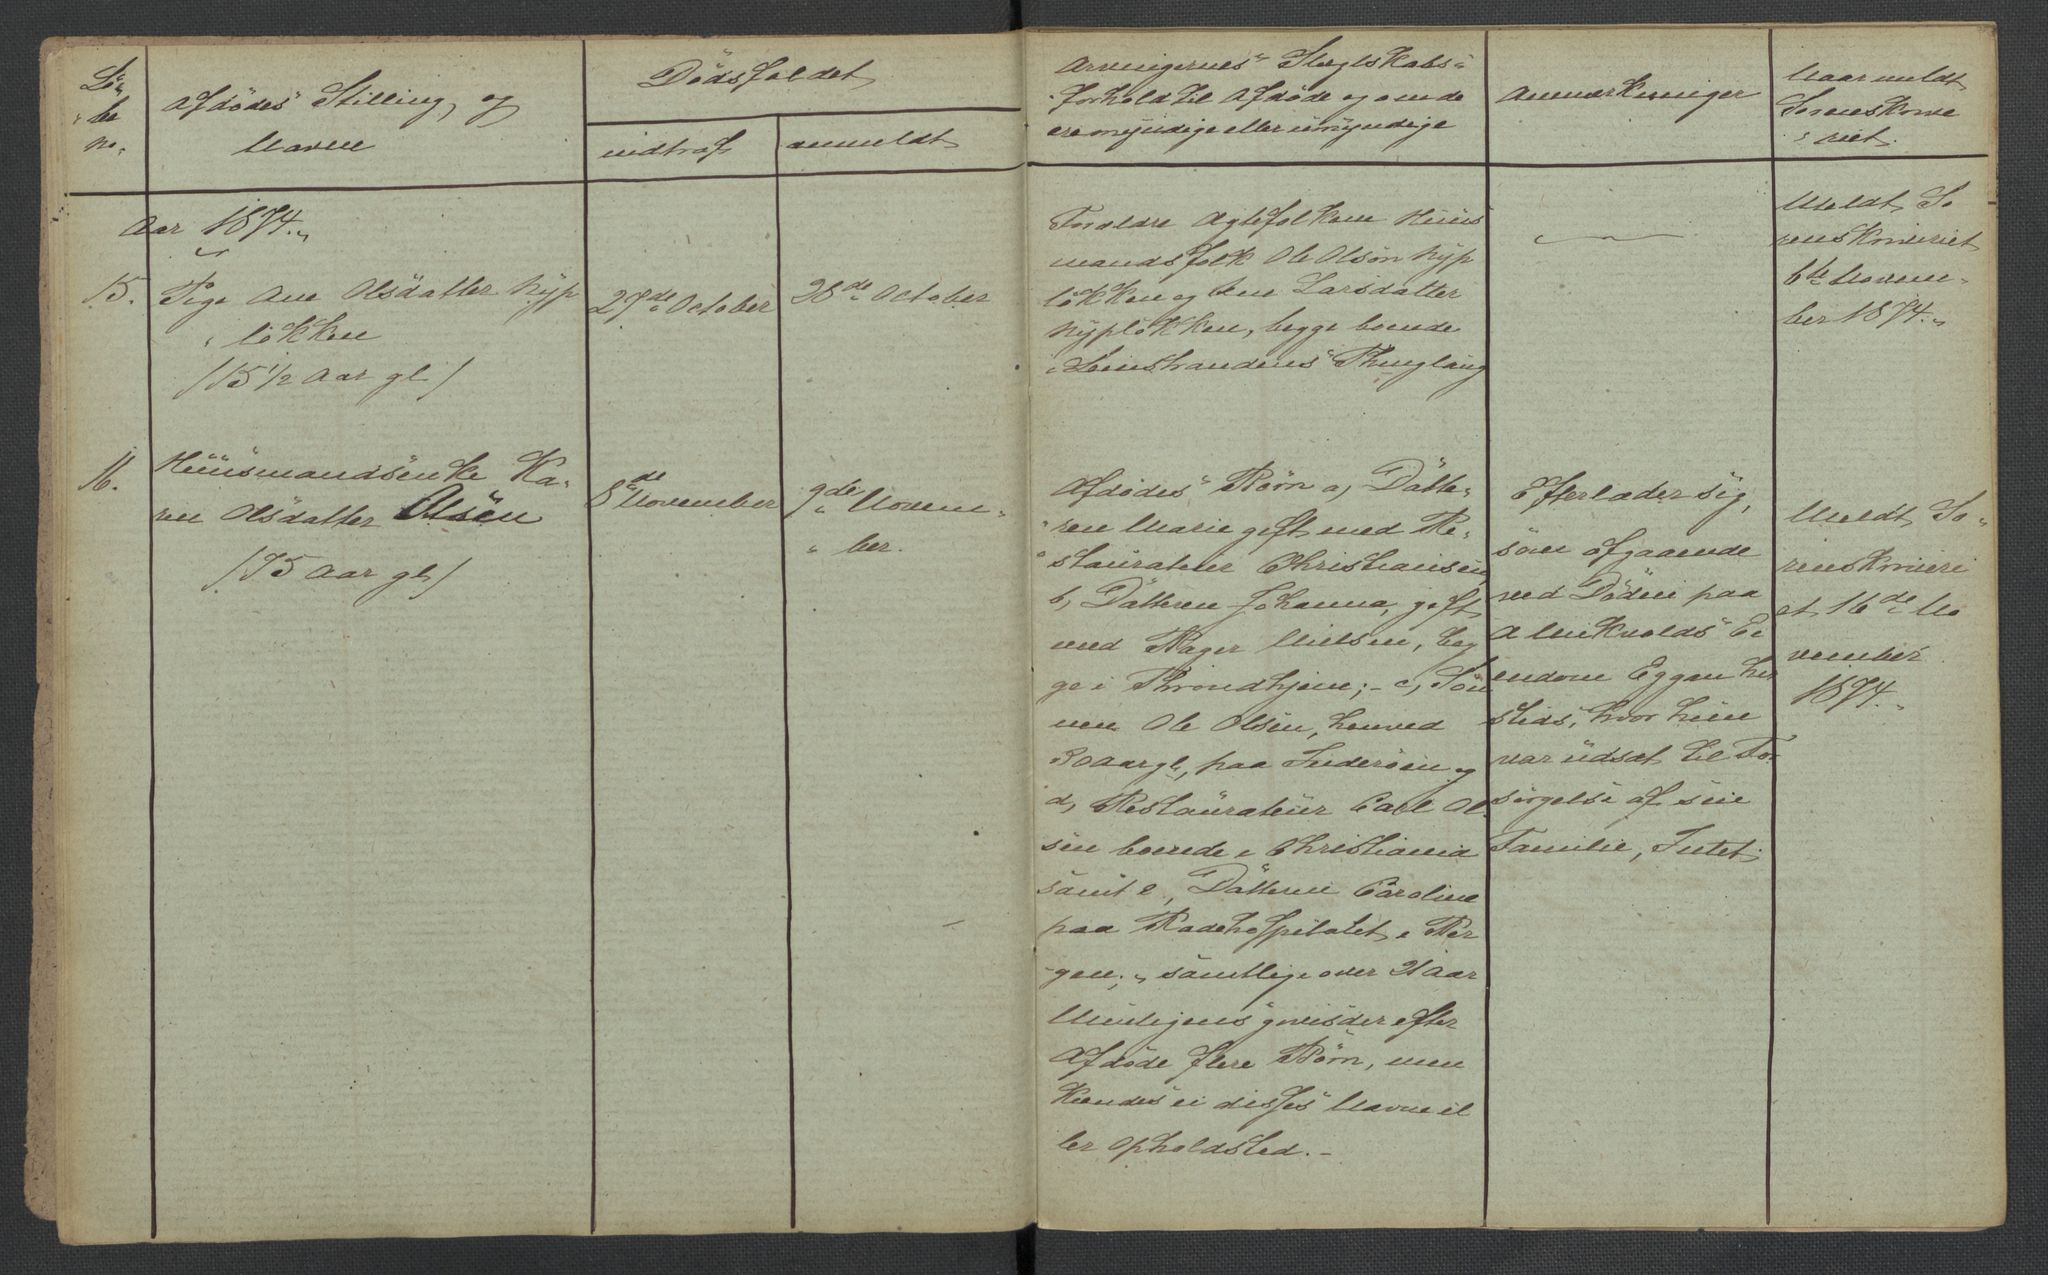 Lö-
be
no.
Afdødes Stilling, og
Navn
Dödsfaldet
indtraf
anmeldt
Arvingernes Slegtskabs-
forhold til Afdøde og om de
ere myndige eller umyndige
Anmærkninger
Naar meldt
Sorenskrive
riet.
Aar 1874.
15.
Pige Ane Olsdatter Nyp
löKKen
/15 1/2 Aar gl/
27de October
28de October
Forældre Ægtefolkene Huus
mandsfolk Ole Olsön Nyp
lökken og Ane Larsdatter
Nyplökken, begge boende
i Leinstrandens Thinglaug
Meldt So
renskriveriet
6te Novem-
ber 1874.
16.
Huusmandsenke Ka-
ren Olsdatter Olsen
/75 Aar gl/
8de November
9de Novem-
ber.
Afdødes Börn a, Datte-
ren Marie gift med Re-
staurateur Christiansen,
b, Datteren Johanna, gift
med Bager Nielsen, beg
ge i Throndhjem; - c, Søn
nen Ole Olsen, henved
30 Aar gl, paa Inderöen og
d, Restaurateur Carl Ol
sen boende i Christiania
samt e, Datteren Caroline
paa Radehospitalet i Ber
gen; samtlige over 21 Aar
Muligens gives der efter
Afdøde flere Børn, men
Kiendes ei disses Navne el
ler Opholdsted. -
Efterlader sig,
som afgaaende
ved Döden paa
A Muikvolds Ei
endom Eggan her
steds, hvor hun
var udsat til For
sørgelse af sin
Familie, Intet
Meldt So-
renskriveri
et 16de No
vember
1874.